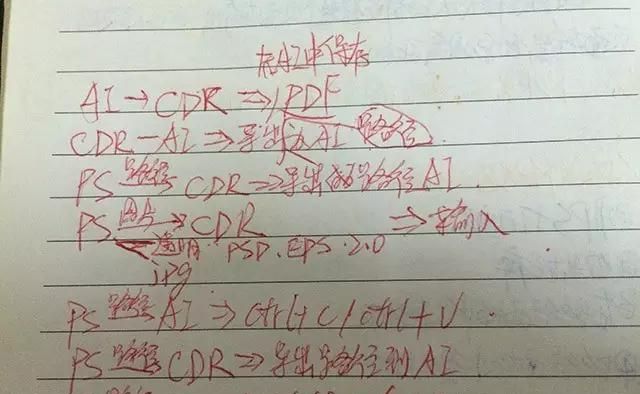 在AI中保存
AI→CDR⇒PDF
CDR-AI⇒导出为AI 路径
PS 路径 CDR⇒导出路径 AI.
PS 图片→CDR ⇒输入
透明. PSD. EPS. 2.0
jpg
PS 路径 AI⇒ctrl+C/ctrl+V.
PS 路径 CDR⇒导出路径到AI